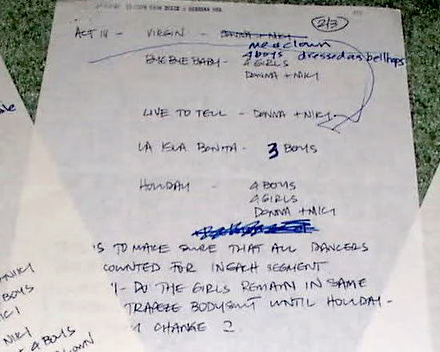 2/3
ACT IV - VIRGIN -
me a clown
4 boys dressed as bellhops
BYE BYE BABY - 4 GIRLS
DONNA + NIKI
LIVE TO TELL - DONNA + NIKI
LA ISLA BONITA - 3 BOYS
HOLIDAY - 4 BOYS
4 GIRLS
DONNA + NIKI
S TO MAKE SURE THAT ALL DANCERS
COUNTED FOR IN EACH SEGMENT
- DO THE GIRLS REMAIN IN SAME
TRAPEZE BODYSUIT UNTIL HOLIDAY -
CHANGE ?
NIKI
BOYS
NIKI
4 BOYS